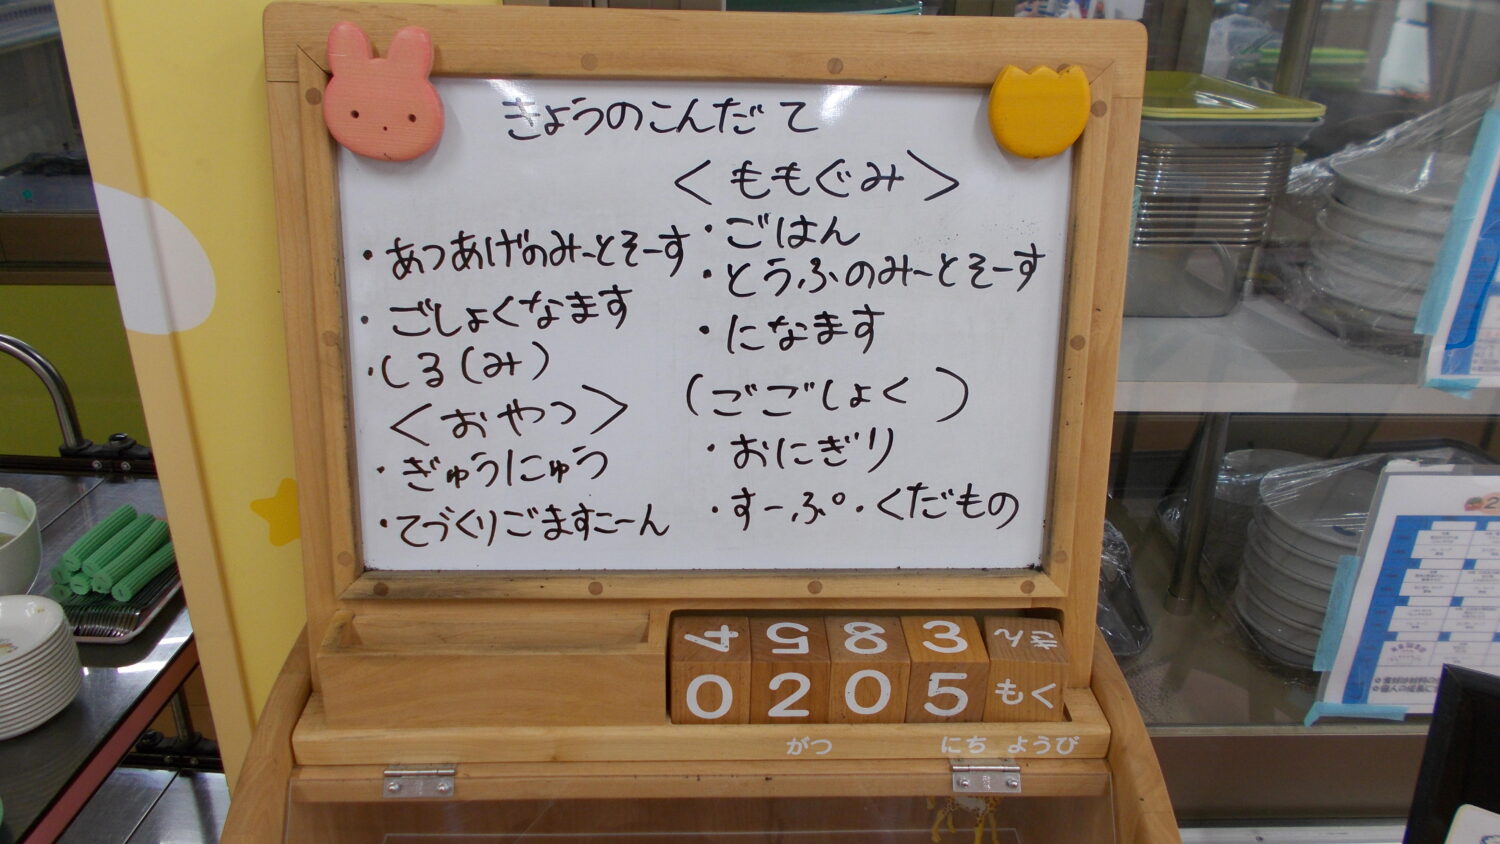 きょうのこんだて
・あつあげのみーとそーす
・ごしょくなます
・しる(み)
<おやつ>
・ぎゅうにゅう
・てづくりごますこーん
<ももぐみ>
・ごはん
・とうふのみーとそーす
・になます
(ごごしょく)
・おにぎり
・すーぷ・くだもの
4 5 8 3 きん
0 2 0 5 もく
がつ にち ようび